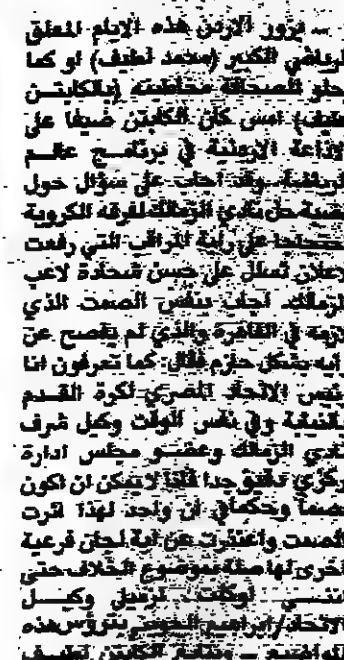 يزور الاردن هذه الايام المعلق
الرياضي الكبير (محمد لطيف) او كما
يحلو للصحافة مخاطبته (بالكابتن
لطيف) امس كان الكابتن ضيفا على
الاذاعة الاردنية في برنامج عالم
الرياضة وقد اجاب على سؤال حول
قضية حل نادي الزمالك لفرقه الكروية
على راية المراقب التي رفعت
لاعلان تسلل على حسن شحادة لاعب
الزمالك. اجاب بنفس الصمت الذي
لازمه في القاهرة والذي لم يفصح عن
رأيه بشكل حازم فقال: كما تعرفون انا
رئيس الاتحاد المصري لكرة القدم
بالنيابة وفي نفس الوقت وكيل شرف
نادي الزمالك وعضو مجلس ادارة
مركزي دقيق جدا فأنا لا يمكن ان اكون
خصما وحكما في آن واحد لهذا آثرت
الصمت واعتذرت عن اية لجان فرعية
اخرى لها صلة بموضوع الخلاف حتى
وكيل
الاتحاد/ابراهيم هذه
الكابتن لطيف